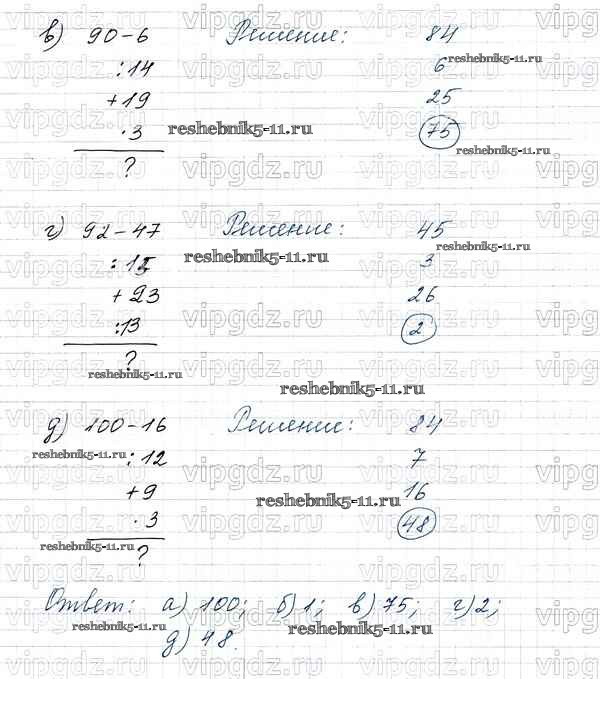 в) 90-6 Решение: 84
:14 6
+19 25
·3 75
?
г) 92-47 Решение: 45
:15 3
+23 26
:13 2
?
д) 100-16 Решение: 84
:12 7
+9 16
·3 48
?
Ответ: а) 100; б) 1; в) 75; г) 2;
д) 48.
vipgdz.ru
reshebnik5-11.ru